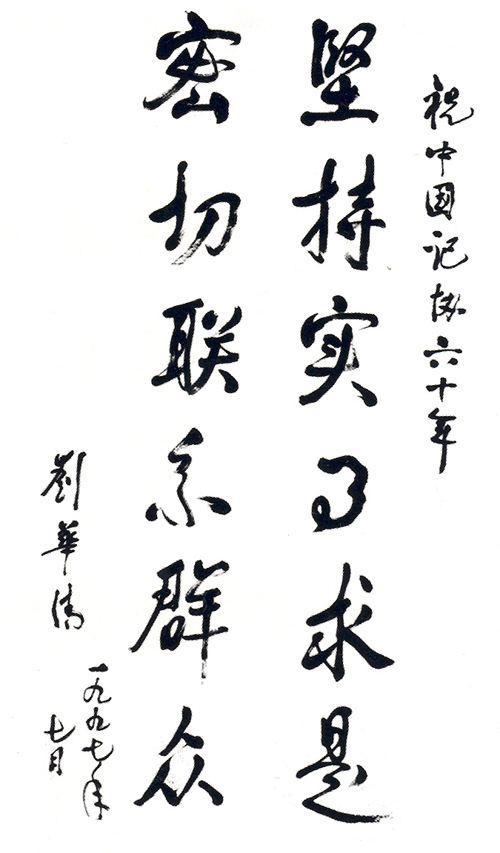 祝中国记协六十年
坚持实事求是
密切联系群众
劉華清
一九九七年
七月